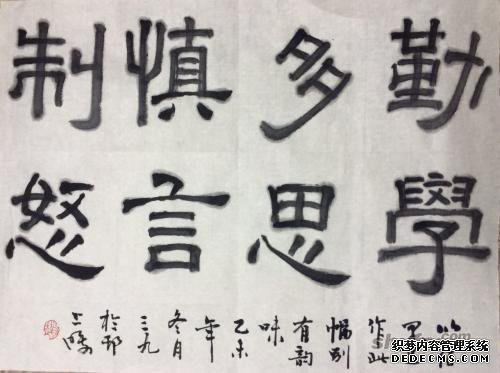 勤學
多思
慎言
制怒
作此
幅别
有韵
味
乙未
年
冬月
三九
.com
织梦内容管理系统
DEDECMS.COM